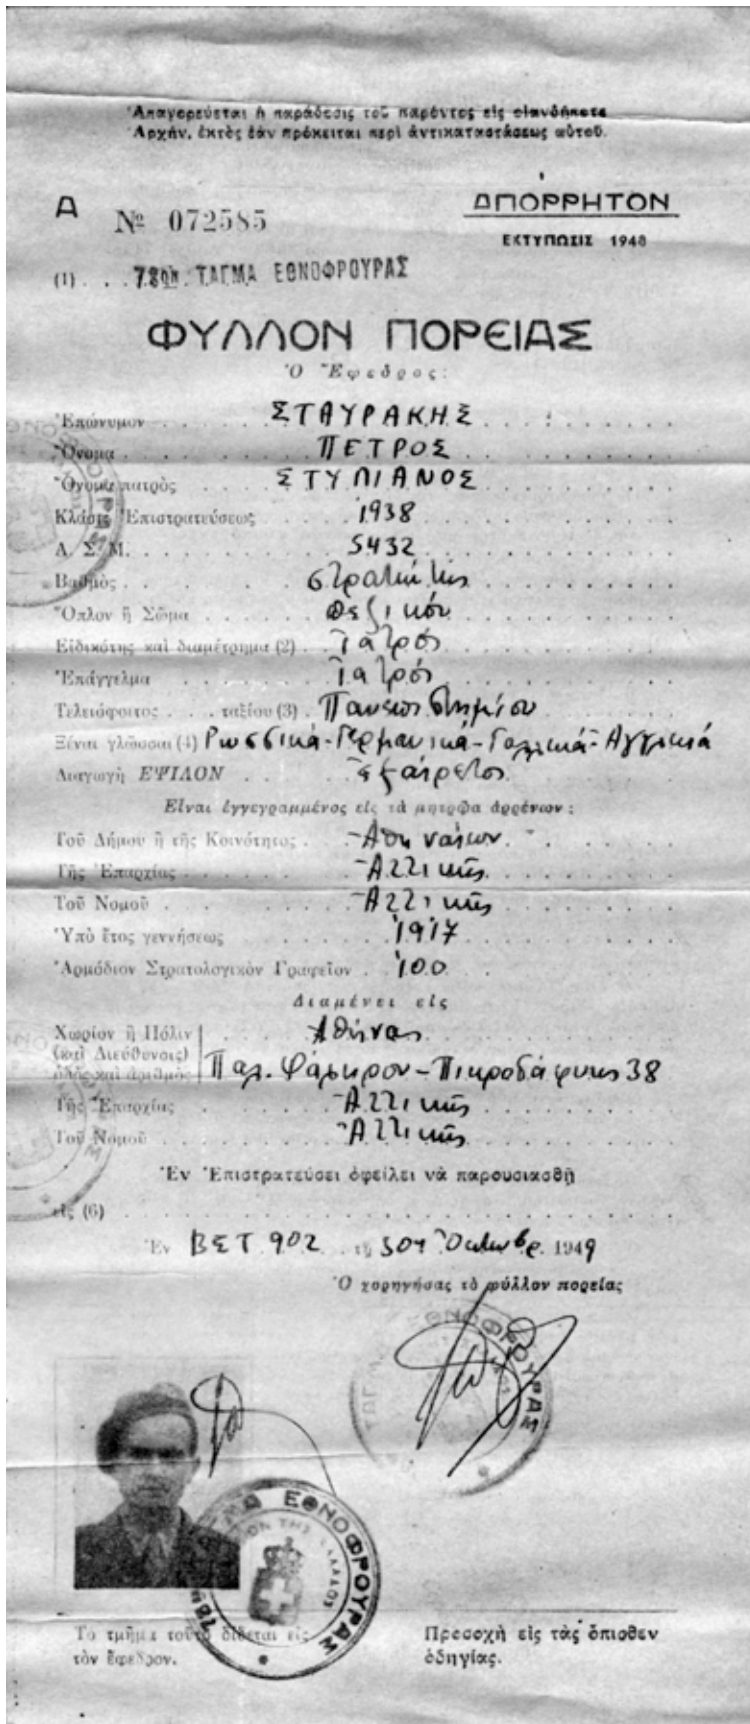 Ἀπαγορεύεται ἡ παράδοσις τοῦ παρόντος εἰς οἱανδήποτε
Ἀρχήν, ἐκτὸς ἐὰν πρόκειται περὶ ἀντικαταστάσεως αὐτοῦ.
Α № 072585
ΑΠΟΡΡΗΤΟΝ
ΕΚΤΥΠΩΣΙΣ 1948
(1) . . . 78ον ΤΑΓΜΑ ΕΘΝΟΦΡΟΥΡΑΣ
ΦΥΛΛΟΝ ΠΟΡΕΙΑΣ
Ὁ Ἔφεδρος:
Ἐπώνυμον ΣΤΑΥΡΑΚΗΣ
Ὄνομα ΠΕΤΡΟΣ
Ὄνομα πατρὸς ΣΤΥΛΙΑΝΟΣ
Κλάσις Ἐπιστρατεύσεως 1938
Α. Σ. Μ. 5432
Βαθμὸς στρατιώτης
Ὅπλον ἢ Σῶμα Πεζικόν
Εἰδικότης καὶ διαμέτρημα (2) Ἰατρός
Ἐπάγγελμα Ἰατρός
Τελειόφοιτος . . . ταξίου (3) Πανεπιστημίου
Ξέναι γλῶσσαι (4) Ρωσσικά-Γερμανικά-Γαλλικά-Αγγλικά
Διαγωγὴ ΕΨΙΛΟΝ Ἐξαίρετος
Εἶναι ἐγγεγραμμένος εἰς τὰ μητρῷα ἀρρένων:
Τοῦ Δήμου ἢ τῆς Κοινότητος Ἀθηναίων
Τῆς Ἐπαρχίας Ἀττικῆς
Τοῦ Νομοῦ Ἀττικῆς
Ὑπὸ ἔτος γεννήσεως 1917
Ἁρμόδιον Στρατολογικὸν Γραφεῖον 100
Διαμένει εἰς
Χωρίον ἢ Πόλιν Ἀθήνας
(καὶ Διεύθυνσις)
ὁδὸς καὶ ἀριθμὸς Παλ. Φάληρον-Πικροδάφνης 38
Τῆς Ἐπαρχίας Ἀττικῆς
Τοῦ Νομοῦ Ἀττικῆς
Ἐν Ἐπιστρατεύσει ὀφείλει νὰ παρουσιασθῇ
εἰς (6)
Ἐν ΒΣΤ 902 τῇ 30ῃ Ὀκτωβρ. 1949
Ὁ χορηγήσας τὸ φύλλον πορείας
ΤΑΓΜΑ ΕΘΝΟΦΡΟΥΡΑΣ
Τὸ τμῆμα τοῦτο δίδεται εἰς
τὸν ἔφεδρον.
Προσοχὴ εἰς τὰς ὄπισθεν
ὁδηγίας.